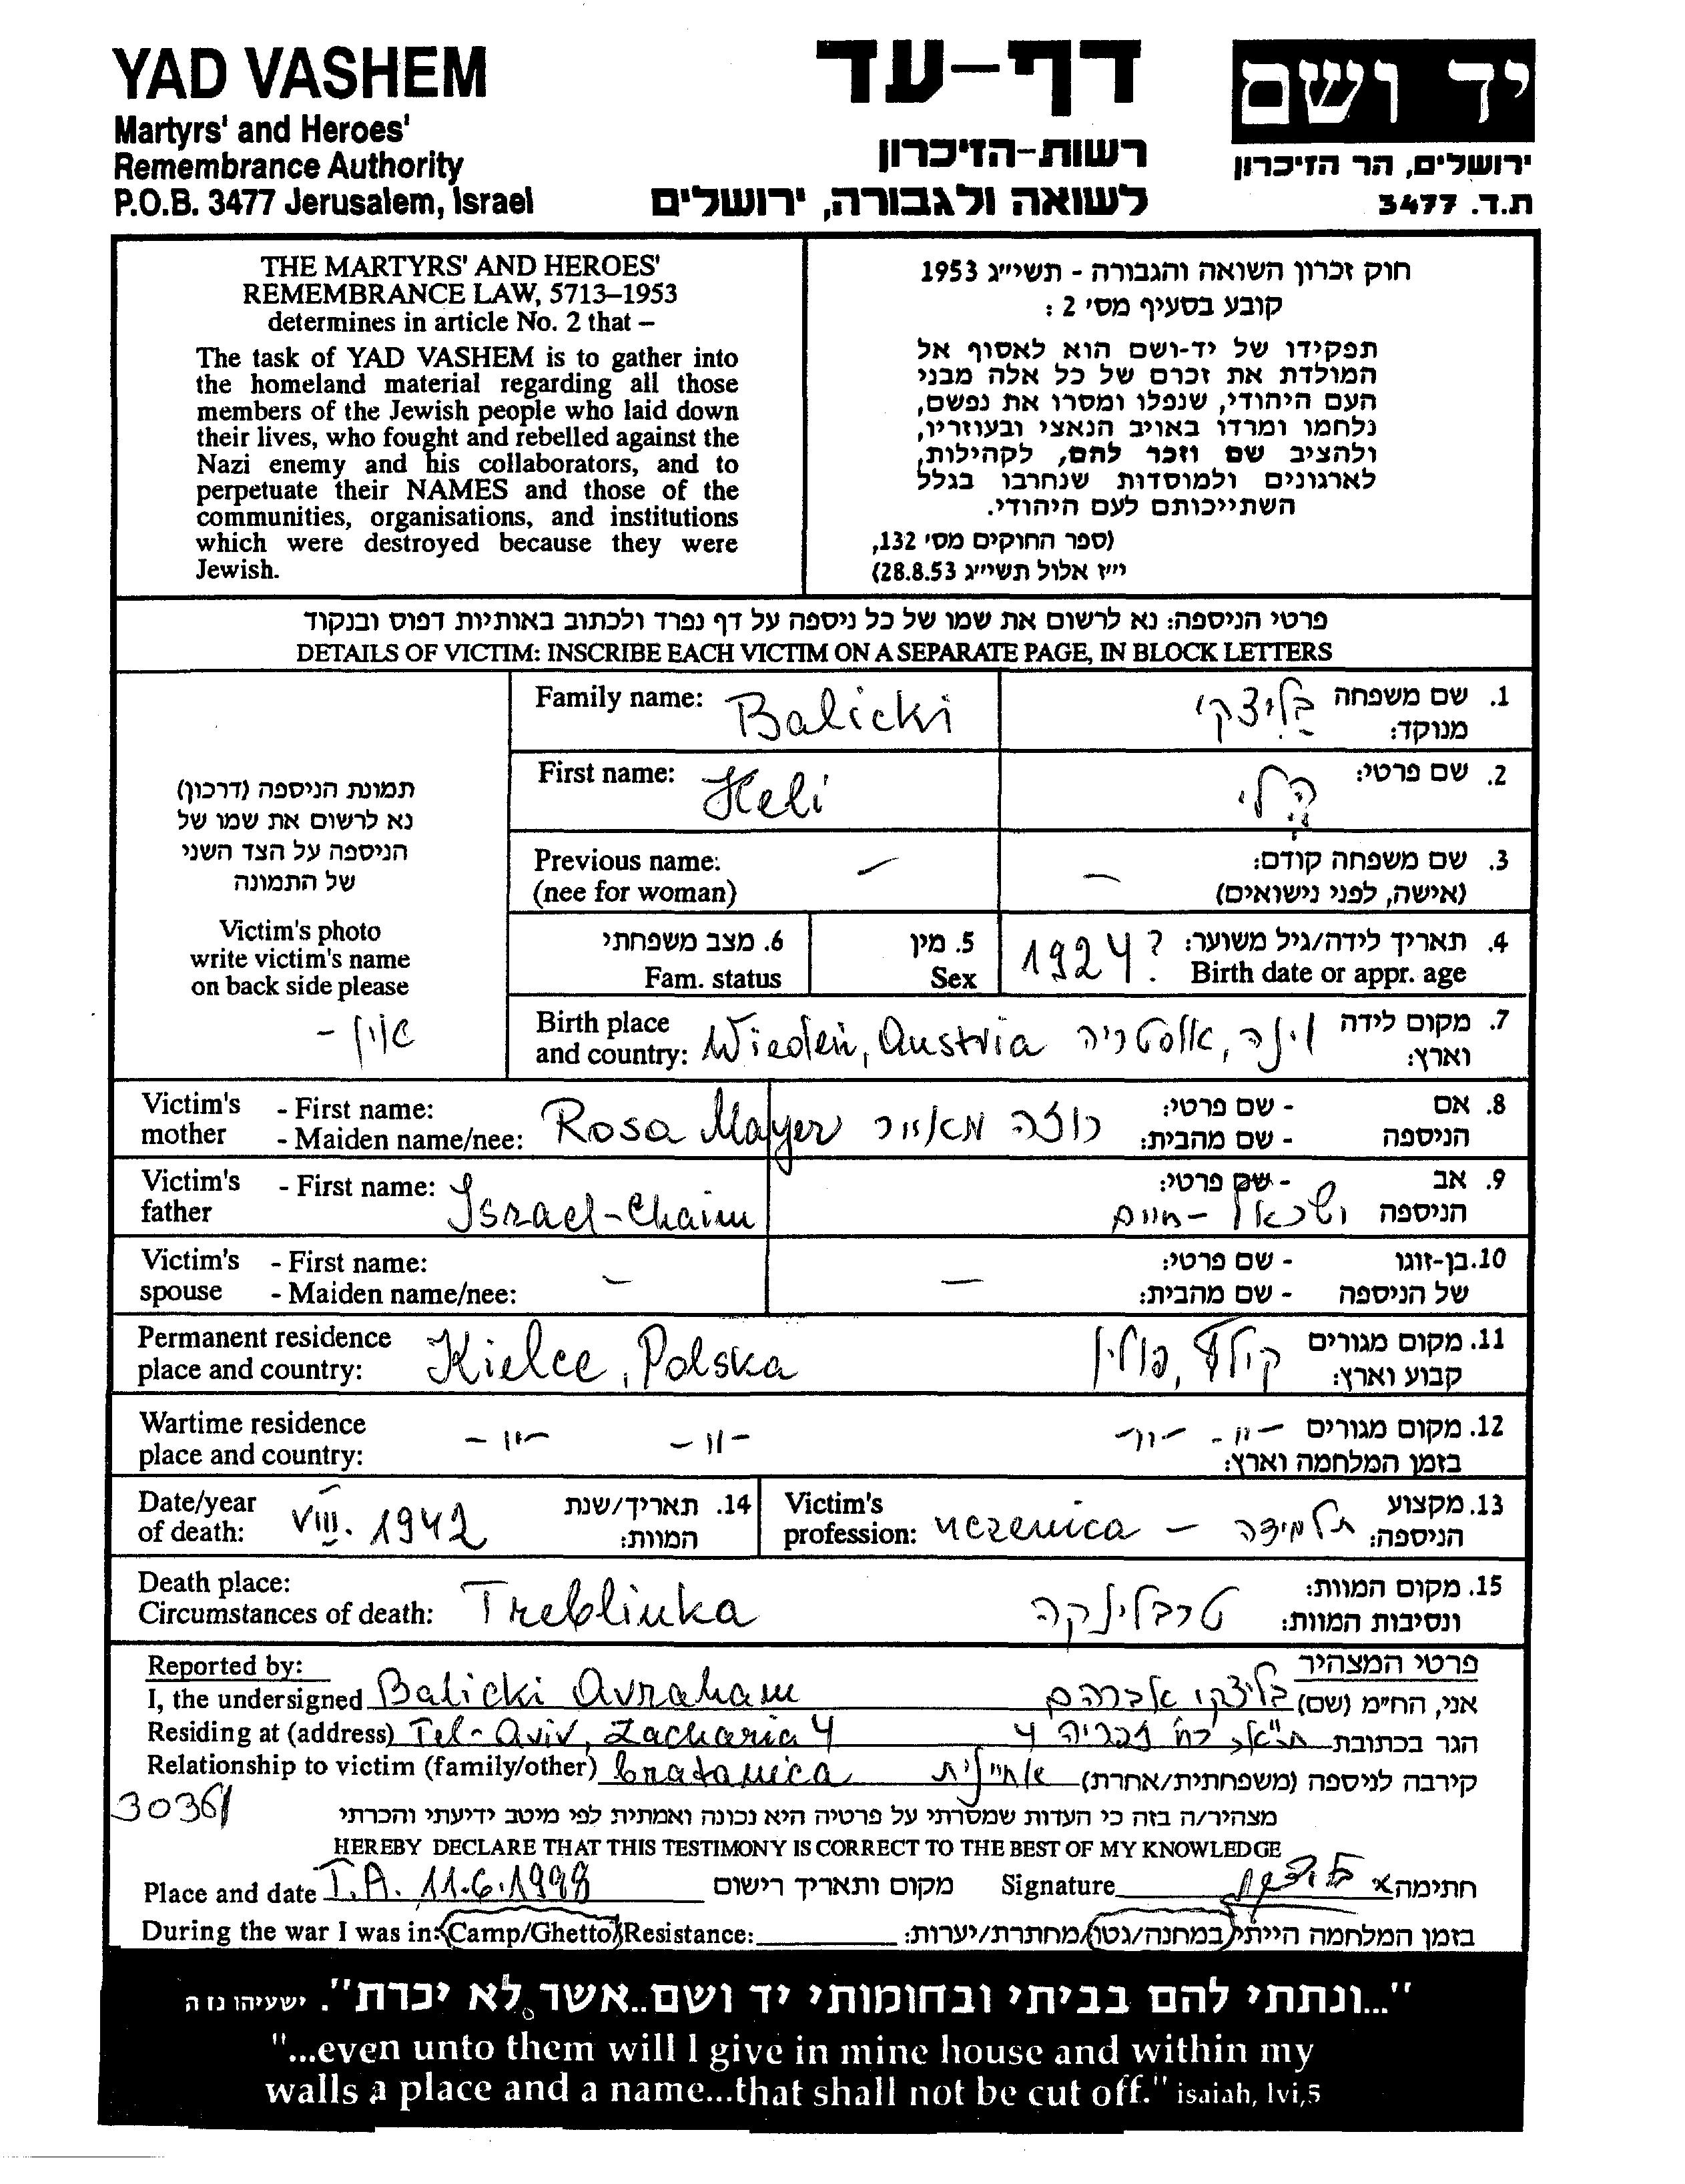 YAD VASHEM
Martyrs' and Heroes'
Remembrance Authority
P.O.B. 3477 Jerusalem, Israel
דף-עד
רשות-הזיכרון
לשואה ולגבורה, ירושלים
יד ושם
ירושלים, הר הזיכרון
ת.ד. 3477
THE MARTYRS' AND HEROES'
REMEMBRANCE LAW, 5713–1953
determines in article No. 2 that –
The task of YAD VASHEM is to gather into
the homeland material regarding all those
members of the Jewish people who laid down
their lives, who fought and rebelled against the
Nazi enemy and his collaborators, and to
perpetuate their NAMES and those of the
communities, organisations, and institutions
which were destroyed because they were
Jewish.
חוק זכרון השואה והגבורה - תשי״ג 1953
קובע בסעיף מס' 2 :
תפקידו של יד-ושם הוא לאסוף אל
המולדת את זכרם של כל אלה מבני
העם היהודי, שנפלו ומסרו את נפשם,
נלחמו ומרדו באויב הנאצי ובעוזריו,
ולהציב שם וזכר להם, לקהילות,
לארגונים ולמוסדות שנחרבו בגלל
השתייכותם לעם היהודי.
(ספר החוקים מס' 132,
י״ז אלול תשי״ג 28.8.53)
פרטי הניספה: נא לרשום את שמו של כל ניספה על דף נפרד ולכתוב באותיות דפוס ובנקוד
DETAILS OF VICTIM: INSCRIBE EACH VICTIM ON A SEPARATE PAGE, IN BLOCK LETTERS
תמונת הניספה (דרכון)
נא לרשום את שמו של
הניספה על הצד השני
של התמונה
Victim's photo
write victim's name
on back side please
אין -
Family name: Balicki בליצקי 1. שם משפחה
מנוקד:
First name: Heli הלי 2. שם פרטי:
Previous name: – – 3. שם משפחה קודם:
(nee for woman) (אישה, לפני נישואים)
6. מצב משפחתי 5. מין 1924? 4. תאריך לידה/גיל משוער:
Fam. status Sex Birth date or appr. age
Birth place 7. מקום לידה
and country: Wiedeń, Austria וינה, אוסטריה וארץ:
Victim's - First name: 8. אם - שם פרטי:
mother - Maiden name/nee: Rosa Mayer רוזה מאייר הניספה - שם מהבית:
Victim's - First name: 9. אב - שם פרטי:
father Israel-Chaim ישראל-חיים הניספה
Victim's - First name: – – 10. בן-זוגו - שם פרטי:
spouse - Maiden name/nee: של הניספה - שם מהבית:
Permanent residence 11. מקום מגורים
place and country: Kielce, Polska קילצה, פולין קבוע וארץ:
Wartime residence - 〃 - - 〃 - - 〃 - - 〃 - 12. מקום מגורים
place and country: בזמן המלחמה וארץ:
Date/year 14. תאריך/שנת
of death: VIII. 1942 המוות:
Victim's 13. מקצוע
profession: uczenica – תלמידה הניספה:
Death place: 15. מקום המוות:
Circumstances of death: Treblinka טרבלינקה ונסיבות המוות:
Reported by: פרטי המצהיר
I, the undersigned Balicki Avraham בליצקי אברהם אני, הח״מ (שם)
Residing at (address) Tel-Aviv, Zacharia 4 ת״א, רח' זכריה 4 הגר בכתובת
Relationship to victim (family/other) bratanica אחיינית קירבה לניספה (משפחתית/אחרת)
30361
מצהיר/ה בזה כי העדות שמסרתי על פרטיה היא נכונה ואמתית לפי מיטב ידיעתי והכרתי
HEREBY DECLARE THAT THIS TESTIMONY IS CORRECT TO THE BEST OF MY KNOWLEDGE
Place and date T.A. 11.6.1998 מקום ותאריך רישום Signature חתימה x
During the war I was in: Camp/Ghetto/Resistance: בזמן המלחמה הייתי במחנה/גטו/מחתרת/יערות:
"...ונתתי להם בביתי ובחומותי יד ושם..אשר לא יכרת". ישעיהו נז ה
"...even unto them will I give in mine house and within my
walls a place and a name...that shall not be cut off." isaiah, lvi,5